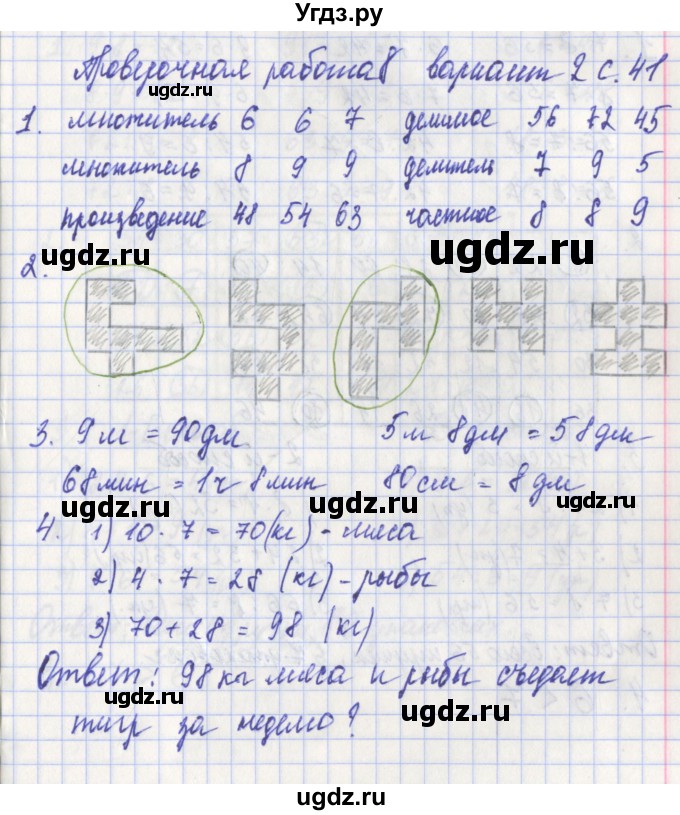 Угдз.ру
Проверочная работа 8 вариант 2 с. 41
ugdz.ru ugdz.ru
1. множитель 6 6 7 делимое 56 72 45
множитель 8 9 9 делитель 7 9 5
произведение 48 54 63 частное 8 8 9
ugdz.ru ugdz.ru ugdz.ru
2.
3. 9 м = 90 дм 5 м 8 дм = 58 дм
ugdz.ru ugdz.ru
68 мин = 1 ч 8 мин 80 см = 8 дм
ugdz.ru ugdz.ru
4. 1) 10 · 7 = 70 (кг) - мяса
2) 4 · 7 = 28 (кг) - рыбы
ugdz.ru
3) 70 + 28 = 98 (кг)
ugdz.ru
Ответ: 98 кг мяса и рыбы съедает
ugdz.ru ugdz.ru
тигр за неделю?
ugdz.ru